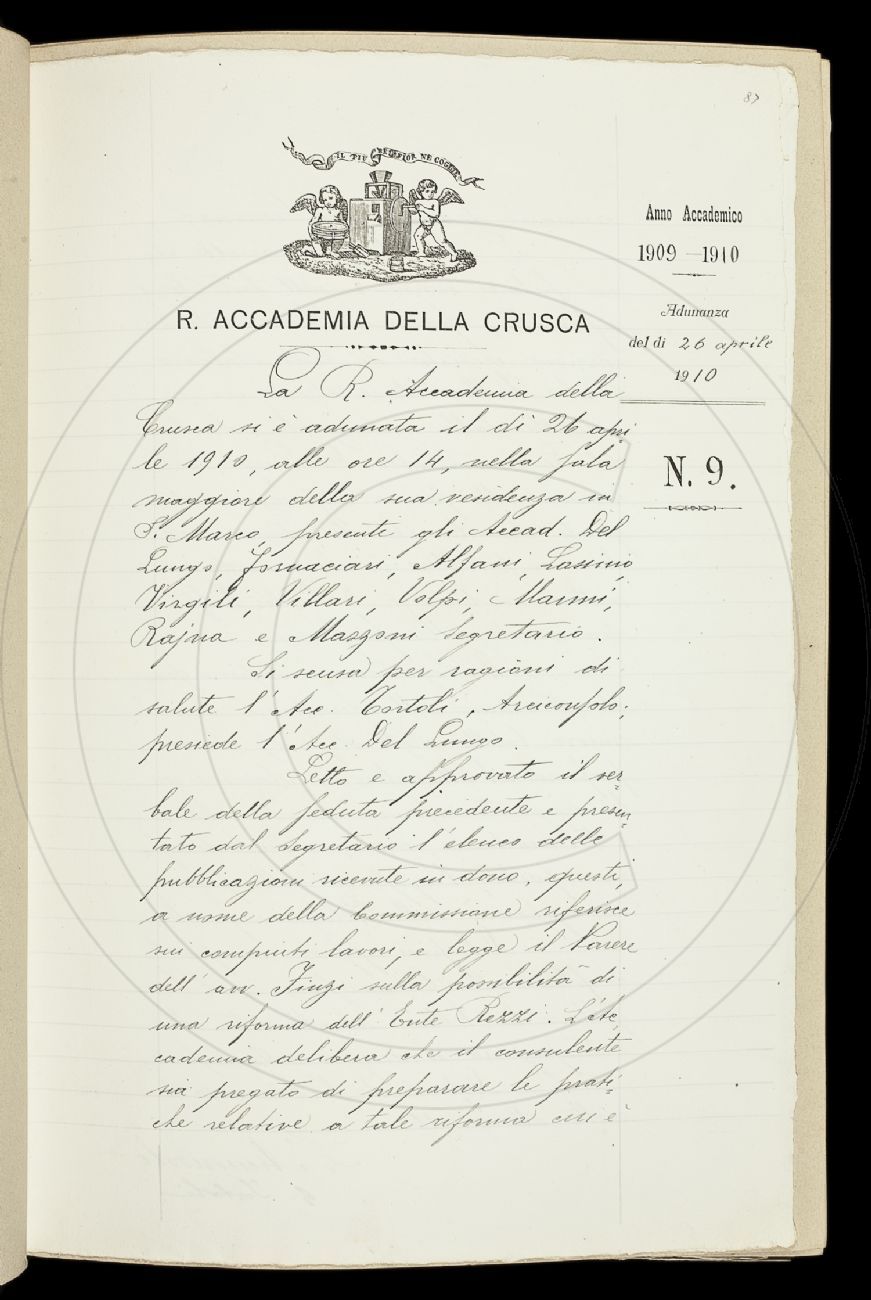 87
IL PIÙ BEL FIOR NE COGLIE
Anno Accademico
1909-1910
Adunanza
del dì 26 aprile
1910
N. 9.
R. ACCADEMIA DELLA CRUSCA
La R. Accademia della
Crusca si è adunata il dì 26 apri-
le 1910, alle ore 14, nella sala
maggiore della sua residenza in
S. Marco, presenti gli Accad. Del
Lungo, Fornaciari, Alfani, Lasinio,
Virgili, Villari, Volpi, Marini,
Rajna e Mazzoni Segretario.
Si scusa per ragioni di
salute l'Acc. Tortoli, Arciconsolo;
presiede l'Acc. Del Lungo.
Letto e approvato il ver-
bale della seduta precedente e presen-
tato dal Segretario l'elenco delle
pubblicazioni ricevute in dono, questi,
a nome della Commissione riferisce
sui compiuti lavori, e legge il Parere
dell'avv. Finzi sulla possibilità di
una riforma dell'Ente Rezzi. L'Ac-
cademia delibera che il consulente
sia pregato di preparare le prati-
che relative a tale riforma cui è